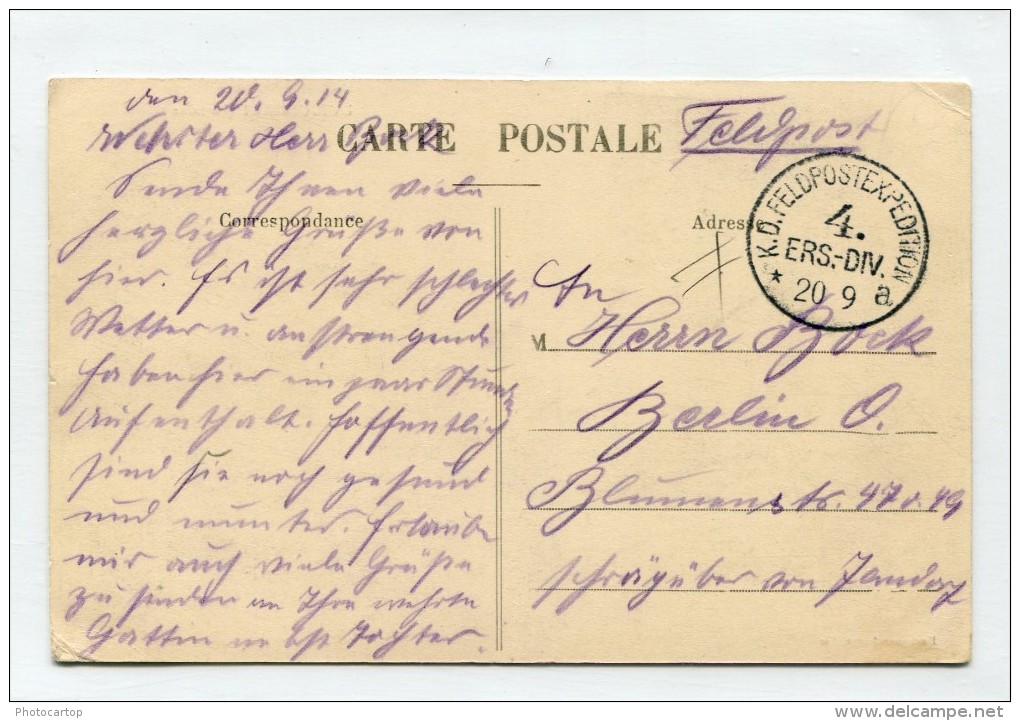 den 20.9.14
Wehrter Herr Bock
Sende Ihnen viele
herzliche Grüße von
hier. Es ist sehr schlechtes
Wetter u. anstrengende
haben hier ein paar Stunden
Aufenthalt. Hoffentlich
sind sie noch gesund
und munter. Erlaube
mir auch viele Grüße
zu senden an Ihre wehrte
Gattin nebst Tochter.
CARTE POSTALE
Feldpost
Correspondance
Adresse
K.D.FELDPOSTEXPEDITION
4.
ERS.-DIV.
* 20 9 a
An
M Herrn Bock
Berlin O.
Blumenstr. 47 o. 49
schrägüber von Jandorf
Photocartop
delcampe.net